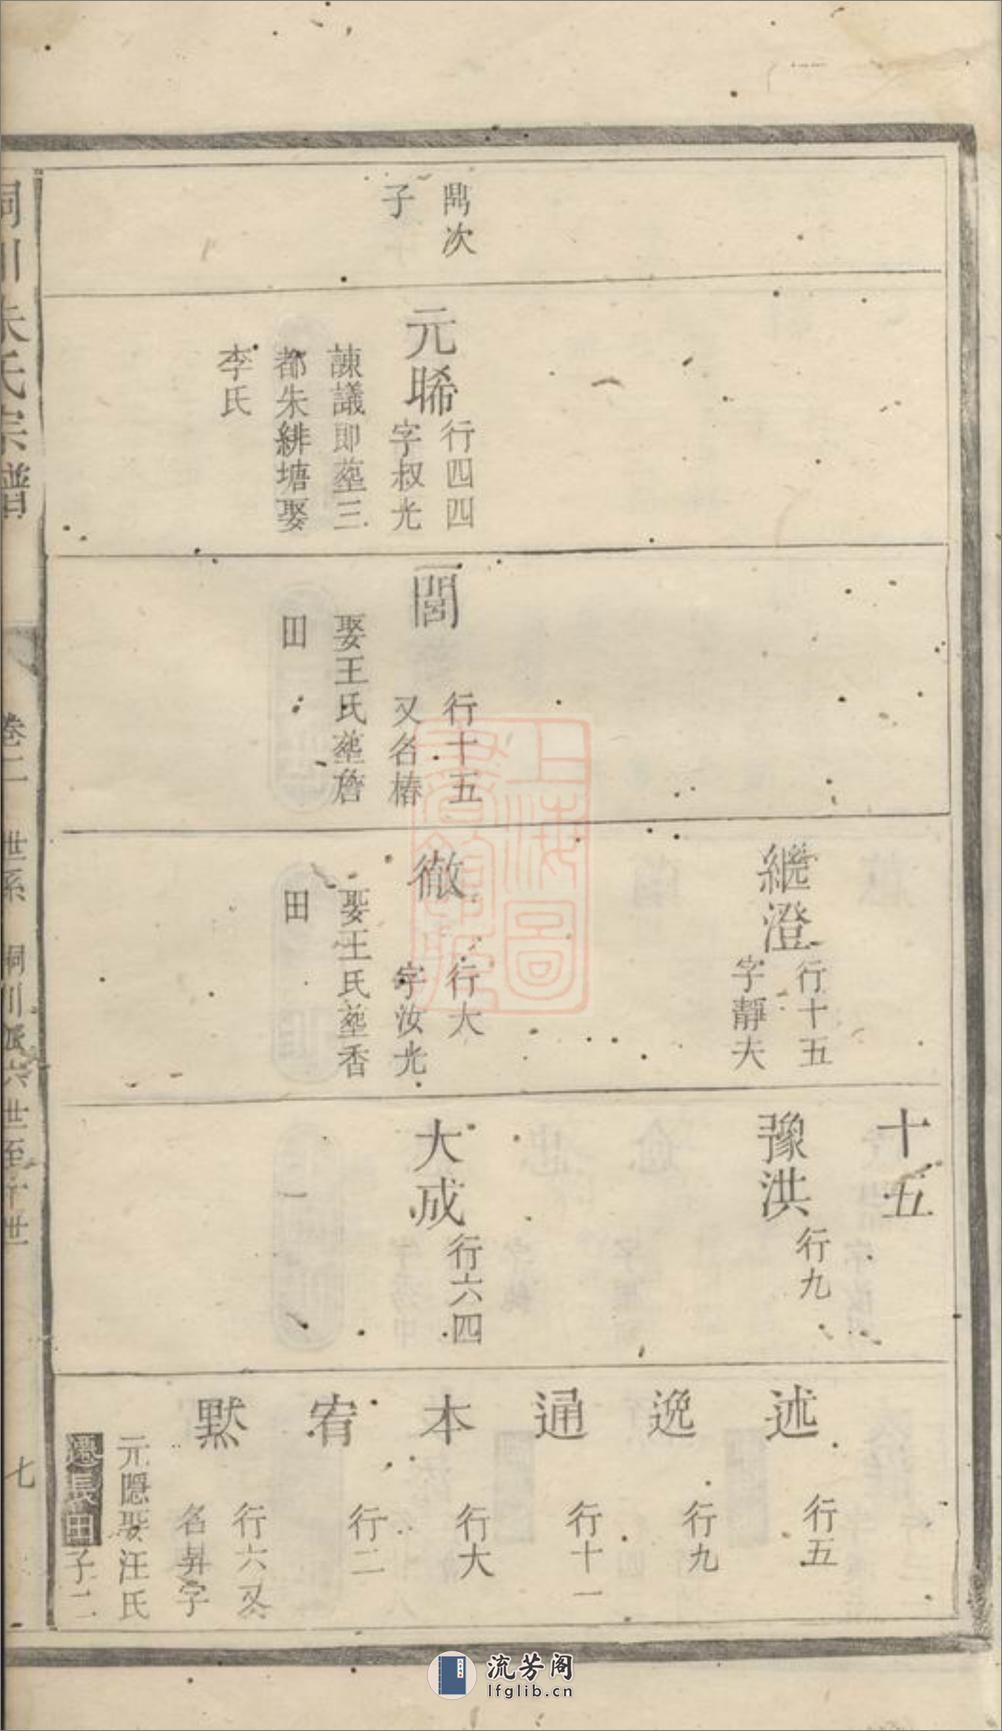 鼎次
子
元晞
行四四
字叔光
諫議即塟三
都朱緋塘娶
李氏
誾
行十五
又名椿
娶王氏塟詹
田
繼澄
行十五
字靜夫
徹
行大
字汝光
娶王氏塟香
田
十五
豫洪
行九
大成
行六四
述
行五
逸
行九
通
行十一
本
行大
宥
行二
默
行六又
名昇字
元隱娶汪氏
遷長田子二
桐川朱氏宗譜
卷二
世系
桐川派六世至十世
七
上海圖
書館藏
流芳阁
lfglib.cn